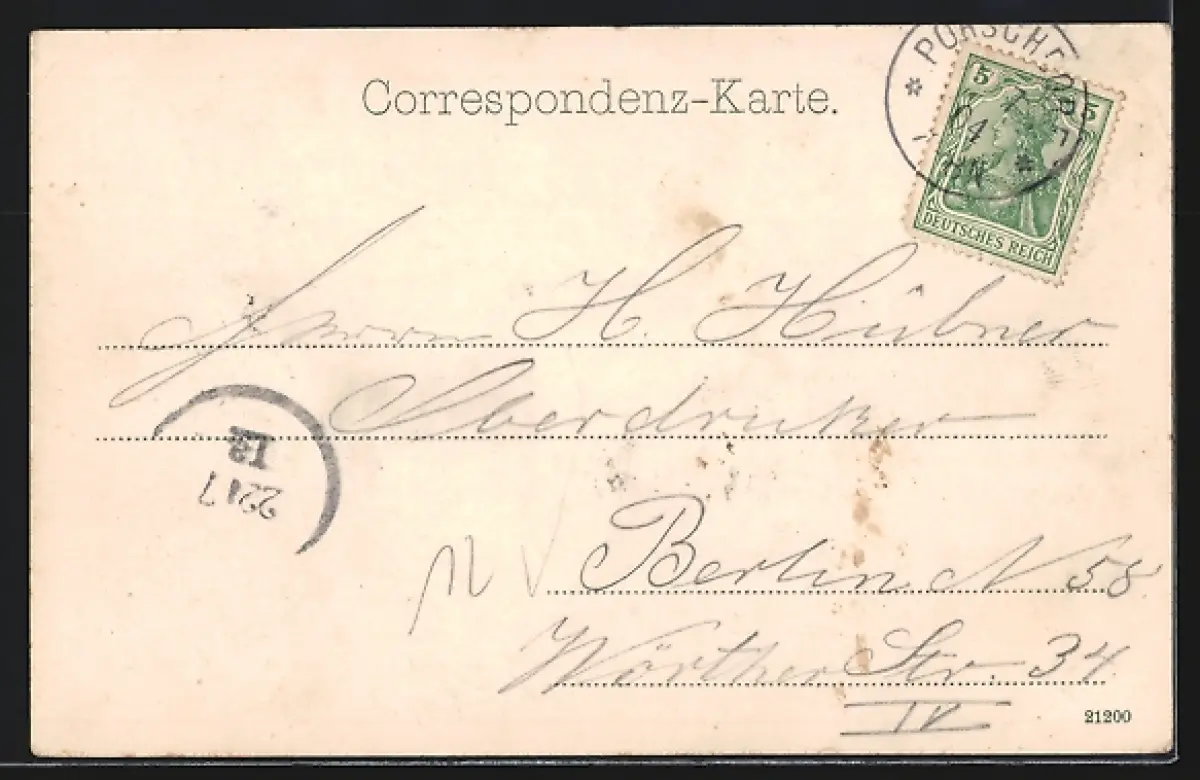 Correspondenz-Karte.
PORSCHDORF
5 5
DEUTSCHES REICH
Herrn H. Hübner
Oberdrucker
2217
Berlin N 58
Wörther Str. 34
IV
21200